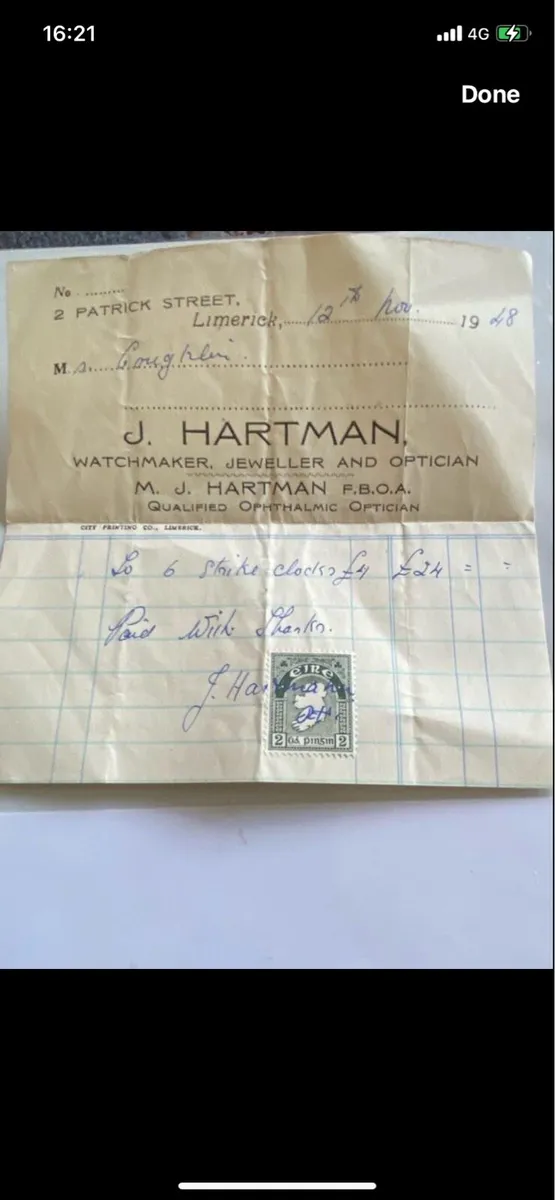 16:21
4G
Done
No ..........
2 PATRICK STREET,
Limerick, 12th Nov. 1948
M s. Coughlin.
J. HARTMAN,
WATCHMAKER, JEWELLER AND OPTICIAN
M. J. HARTMAN F.B.O.A.
QUALIFIED OPHTHALMIC OPTICIAN
CITY PRINTING CO., LIMERICK.
To 6 Strike clocks £4 £24 = =
Paid With Thanks.
J. Hartmann
ÉIRE
2 Dá pingin 2